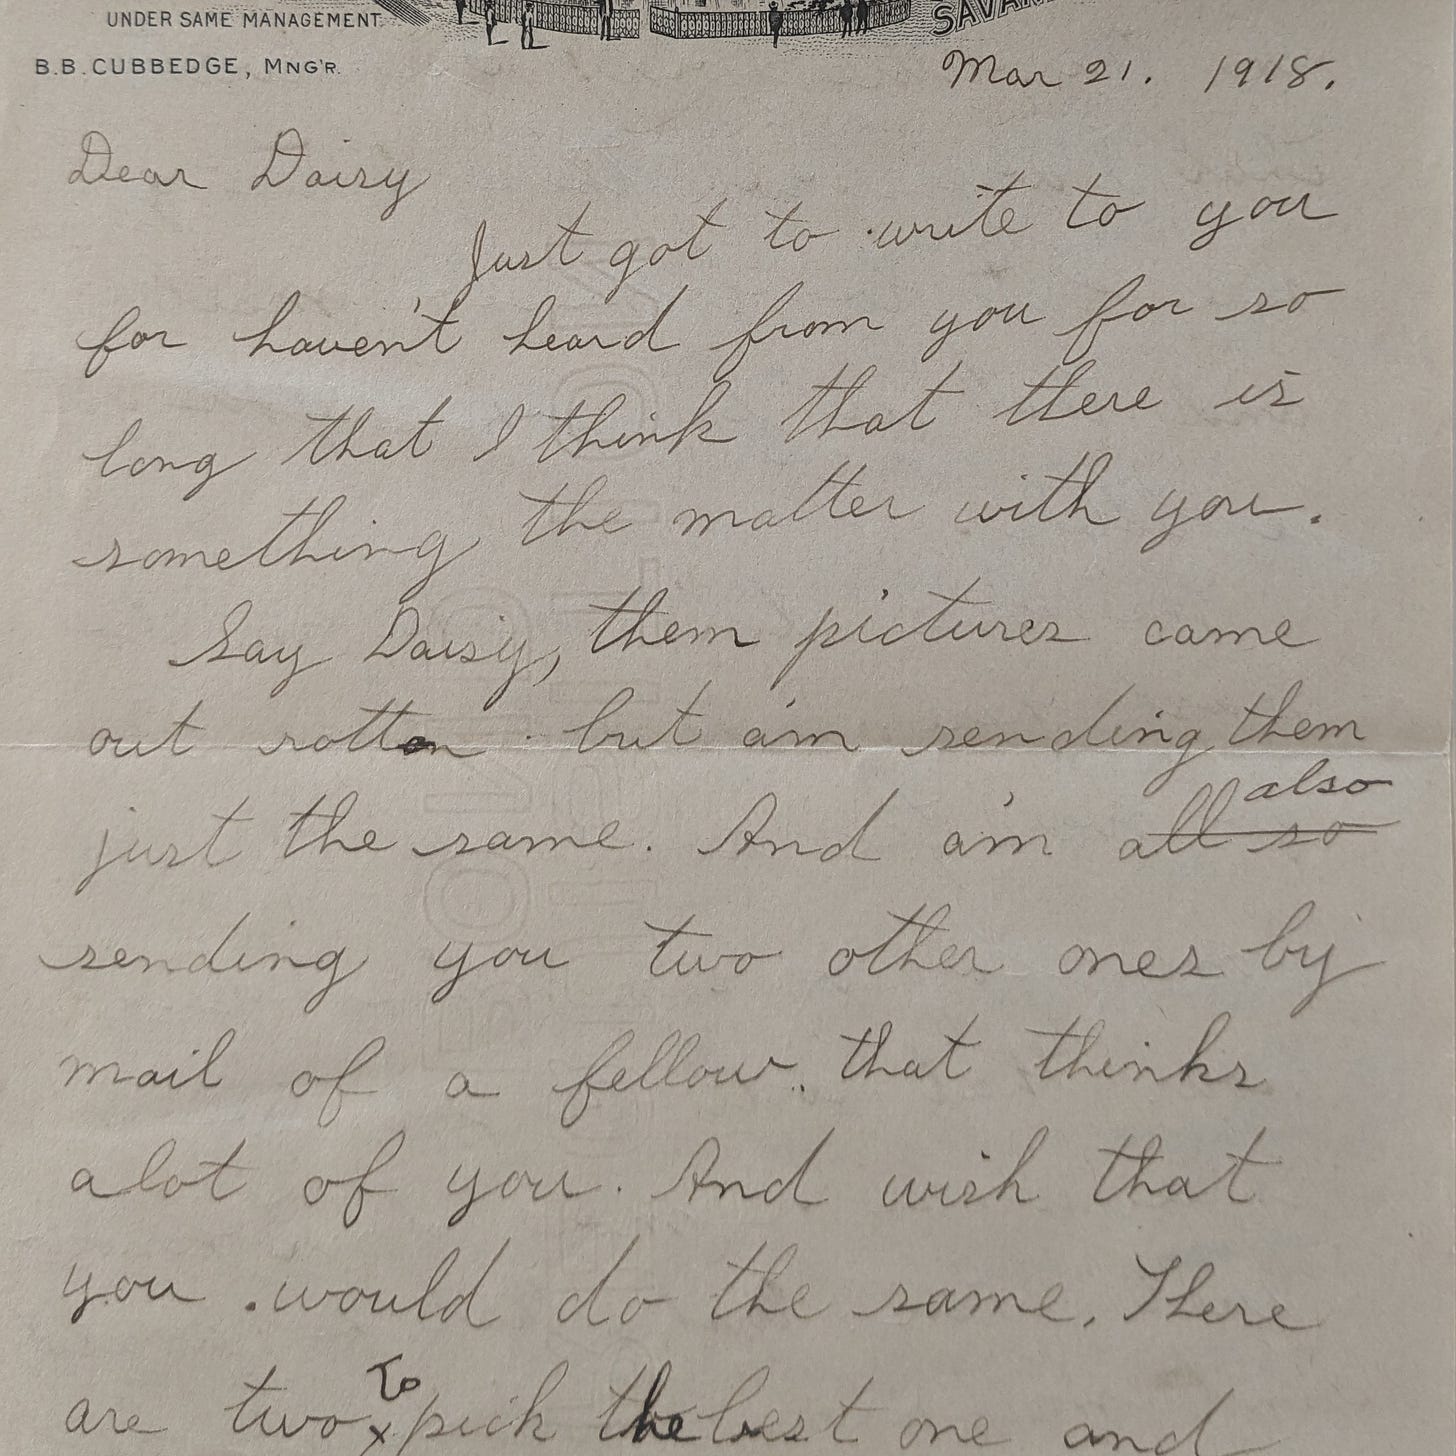 UNDER SAME MANAGEMENT
B.B. CUBBEDGE, MNG'R.
Mar 21. 1918.
Dear Daisy
Just got to write to you
for haven't heard from you for so
long that I think that there is
something the matter with you.
Say Daisy, them pictures came
out rotten but a'm sending them
also
just the same. And a'm all so
sending you two other ones by
mail of a fellow that thinks
alot of you. And wish that
you would do the same. There
To
are two x pick the best one and